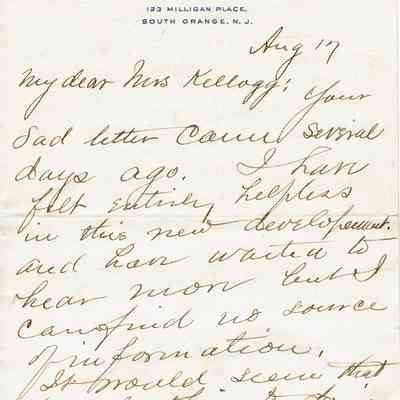 123 MILLIGAN PLACE,
SOUTH ORANGE, N. J.
Aug 17
My dear Mrs Kellogg; Your
sad letter came several
days ago. I have
felt entirely helpless
in this new developement.
and have waited to
hear more but I
can find no source
of information.
It would seem that